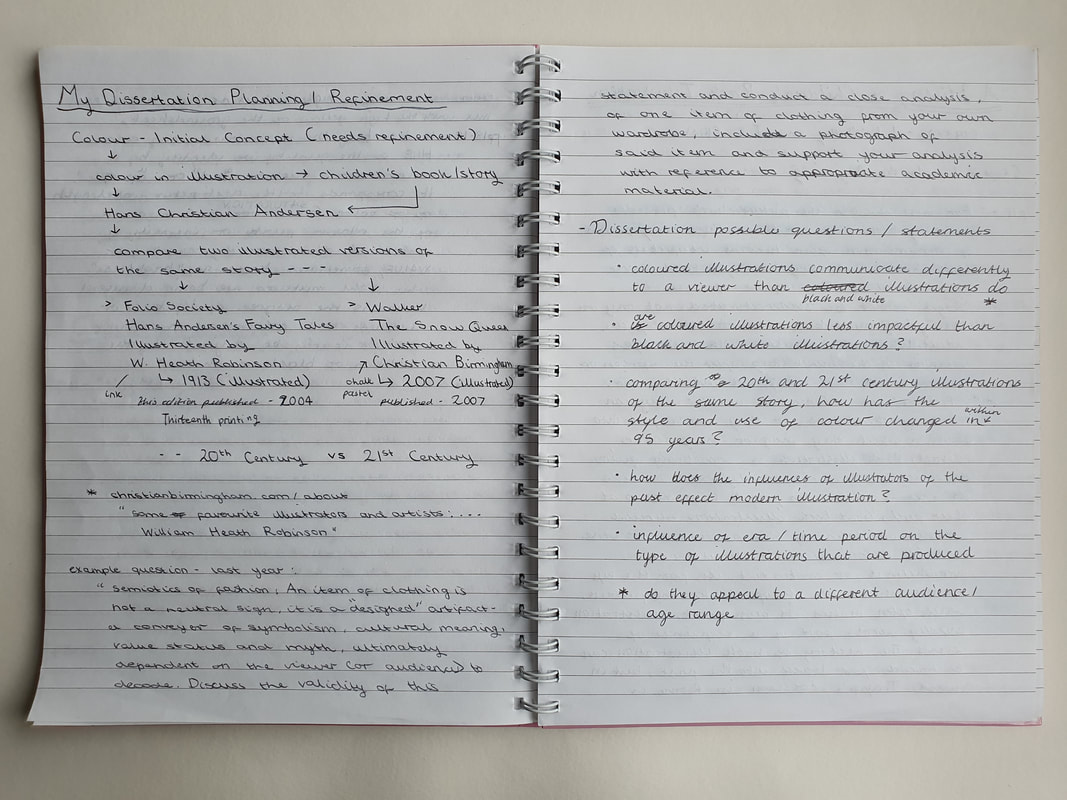 My Dissertation Planning / Refinement
Colour - Initial Concept (needs refinement)
↓
colour in illustration → children's book/story
↓
Hans Christian Andersen ←
↓
compare two illustrated versions of
the same story - - -
↓ ↓
> Folio Society
Hans Andersen's Fairy Tales
Illustrated by
W. Heath Robinson
ink
↳ 1913 (illustrated)
this edition published - 2004
Thirteenth printing
> Walker
The Snow Queen
Illustrated by
Christian Birmingham
chalk pastel
↳ 2007 (illustrated)
published - 2007
- - 20th Century vs 21st Century
* christianbirmingham.com/about
"some favourite illustrators and artists: ....
William Heath Robinson"
example question - last year:
"semiotics of fashion; An item of clothing is
not a neutral sign, it is a "designed" artifact -
a conveyor of symbolism, cultural meaning,
value status and myth, ultimately
dependent on the viewer (or audience) to
decode. Discuss the validity of this
statement and conduct a close analysis,
of one item of clothing from your own
wardrobe, include a photograph of
said item and support your analysis
with reference to appropriate academic
material.
- Dissertation possible questions / statements
• coloured illustrations communicate differently
to a viewer than coloured black and white illustrations do
*
• are coloured illustrations less impactful than
black and white illustrations?
• comparing 20th and 21st century illustrations
of the same story, how has the
style and use of colour changed within
95 years?
• how does the influences of illustrators of the
past effect modern illustration?
• influence of era / time period on the
type of illustrations that are produced
* do they appeal to a different audience/
age range